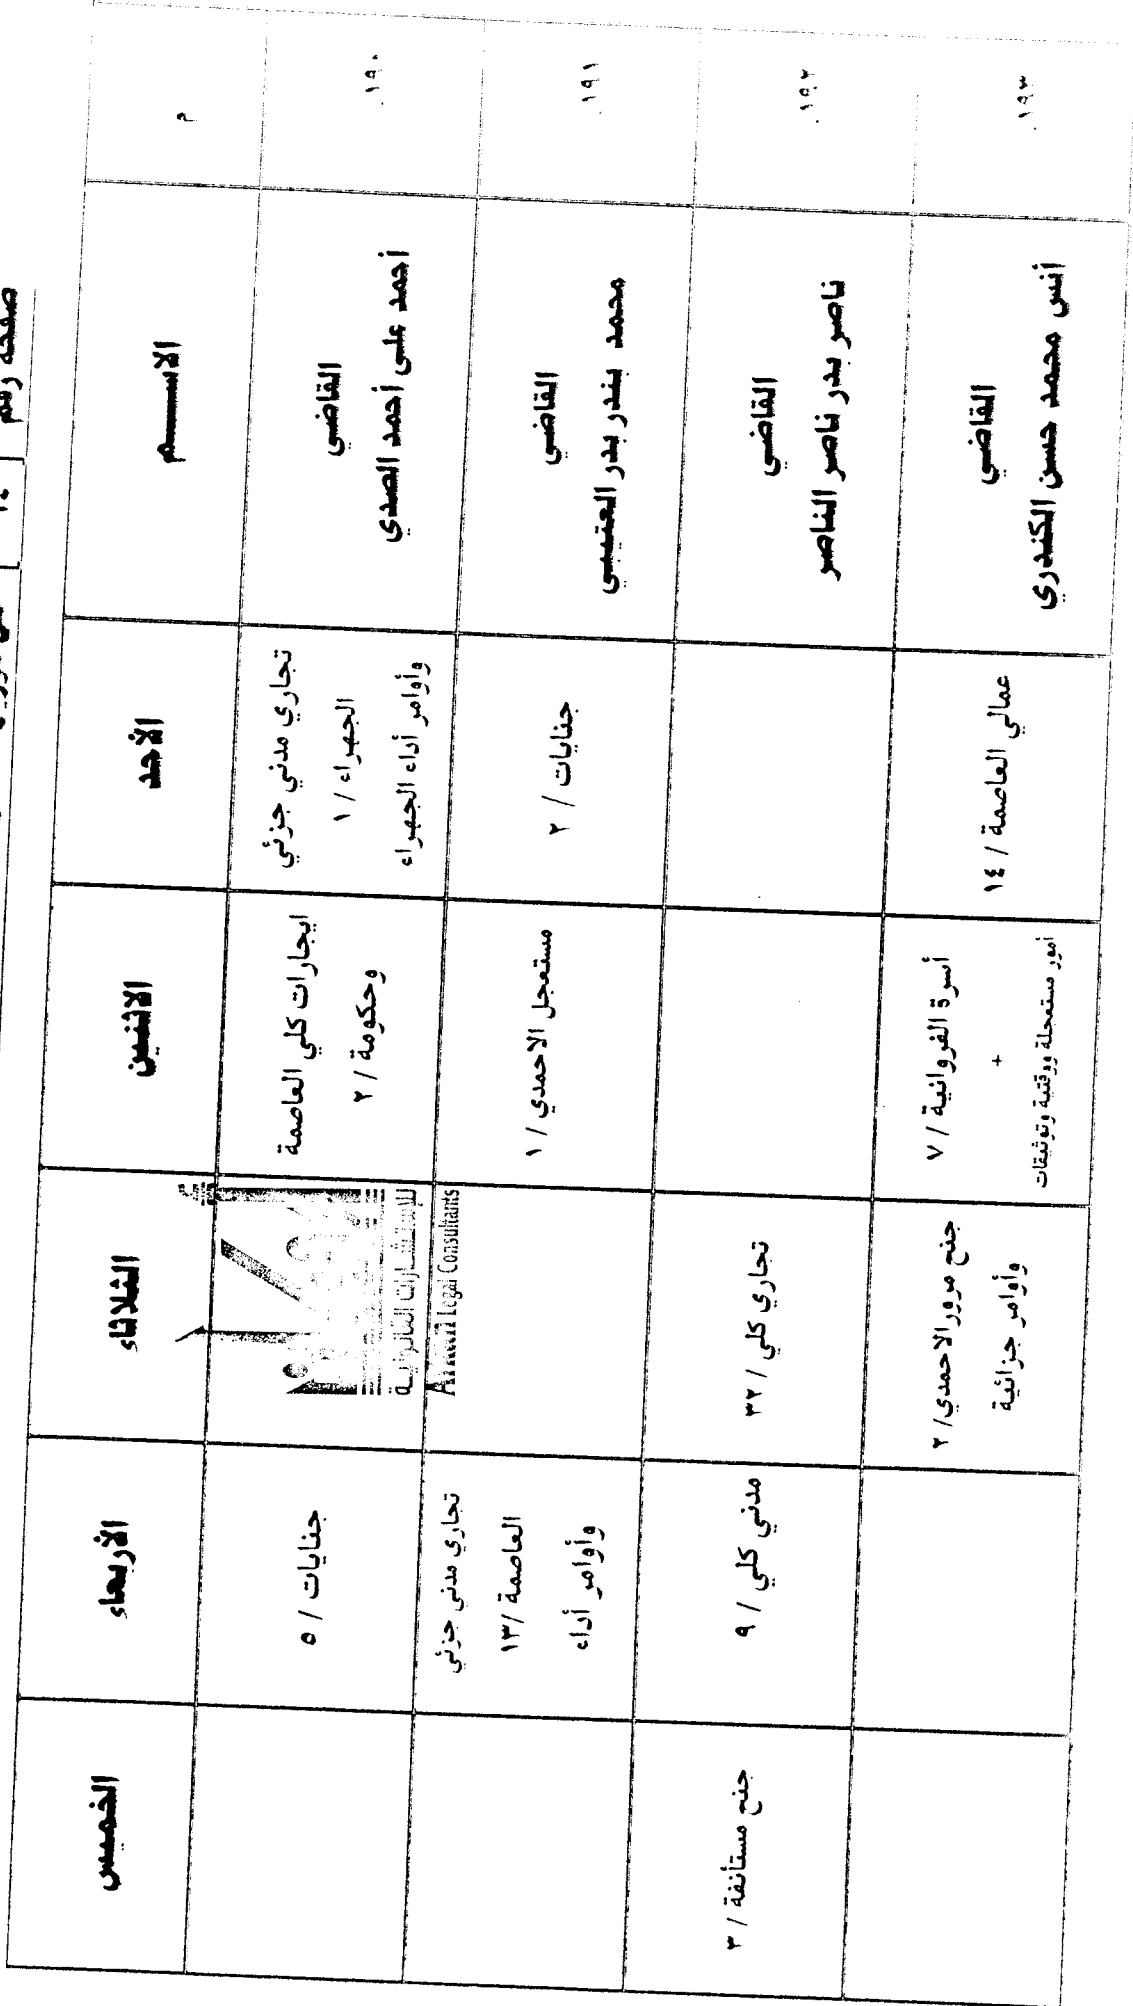 صفحة رقم
م
الاســـم
الأحد
الاثنين
الثلاثاء
الأربعاء
الخميس
١٩٠.
القاضي
أحمد على أحمد الصدي
تجاري مدني جزئي
الجهراء / ١
وأوامر أداء الجهراء
ايجارات كلي العاصمة
وحكومة / ٢
جنايات / ٥
للإستشارات القانونيــة
Legal Consultants
١٩١.
القاضي
محمد بندر بدر العتيبي
جنايات / ٢
مستعجل الاحمدي / ١
تجاري مدني جزئي
العاصمة / ١٣
وأوامر أداء
١٩٢.
القاضي
ناصر بدر ناصر الناصر
تجاري كلي / ٣٢
مدني كلي / ٩
جنح مستأنفة / ٣
١٩٣.
القاضي
أنس محمد حسن الكندري
عمالي العاصمة / ١٤
أسرة الفروانية / ٧
+
أمور مستعجلة ووقتية وتوثيقات
جنح مرور الاحمدي/ ٢
وأوامر جزائية